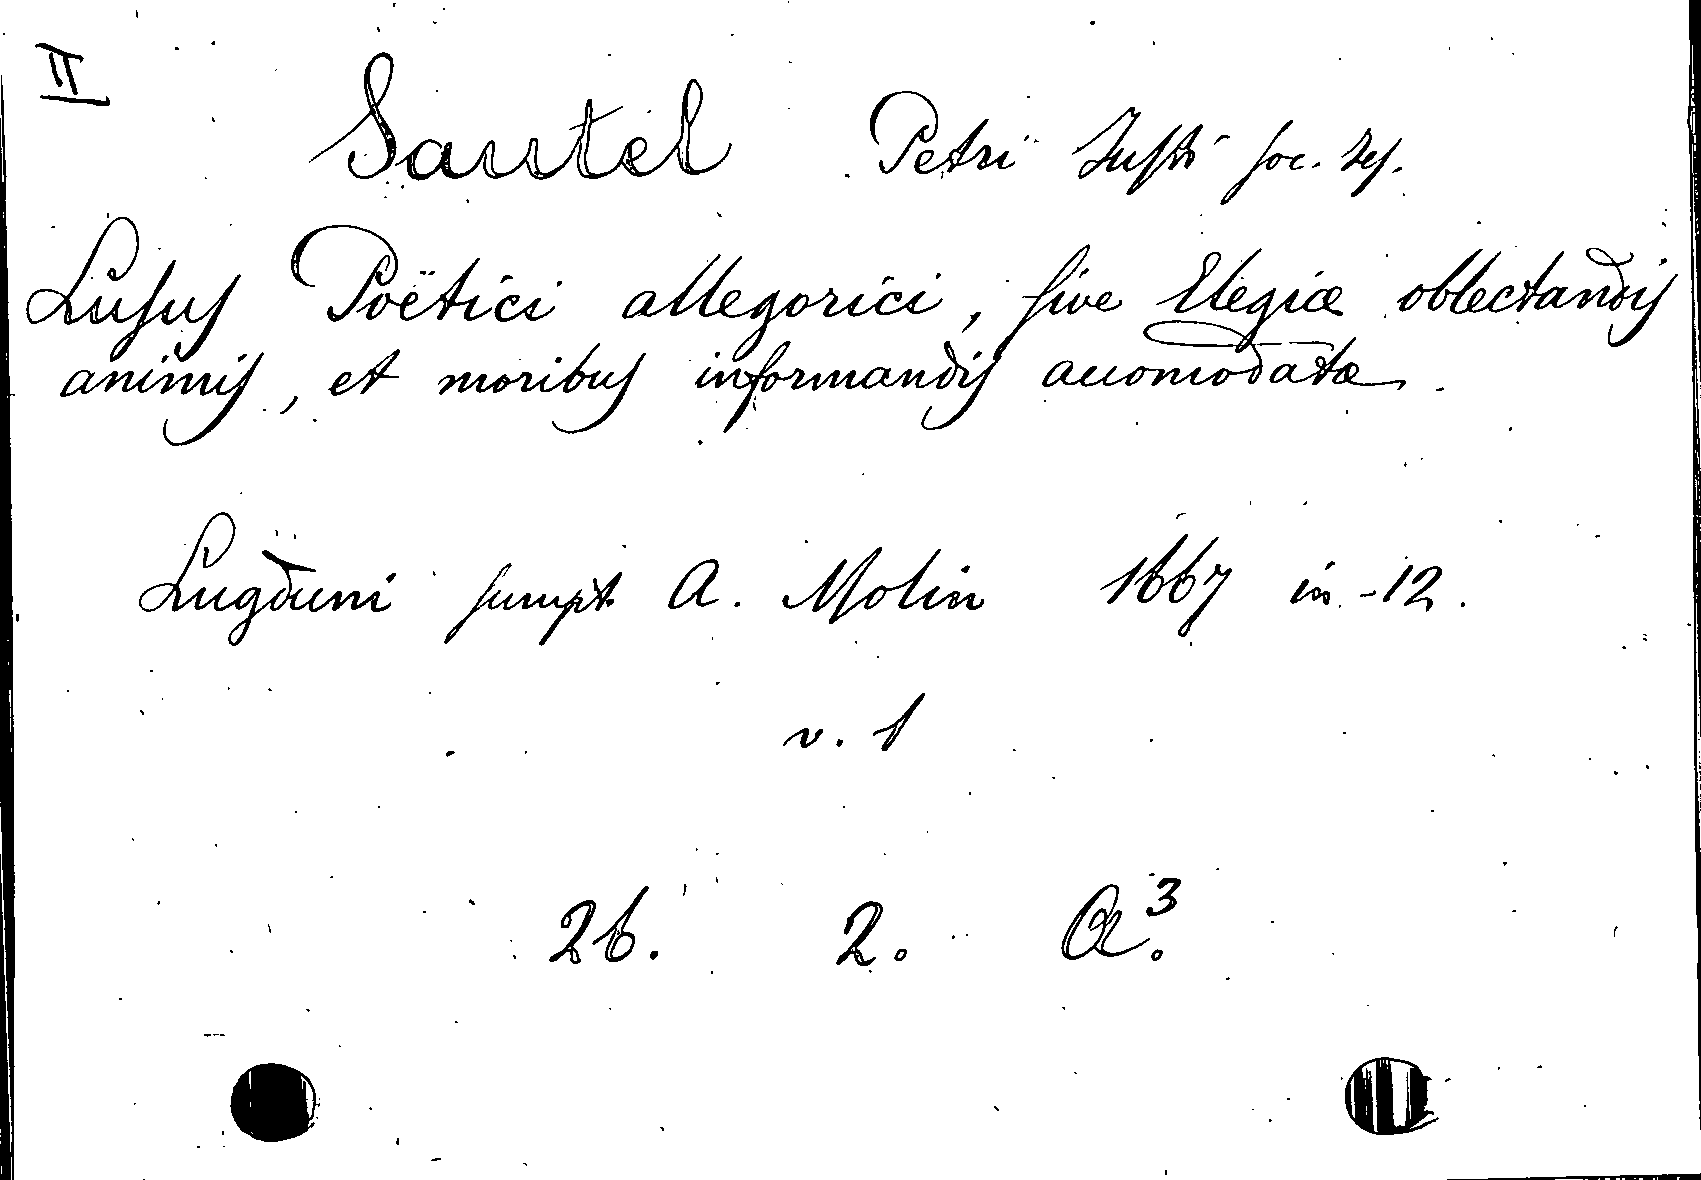 II
Sautel Petri Justi soc. Jes.
Lusus Poëtici allegorici, sive Elegiæ oblectandis
animis, et moribus informandis accomodatæ.
Lugduni sumpt. A. Molin 1667 in-12.
v. 1
26. 2. A.³